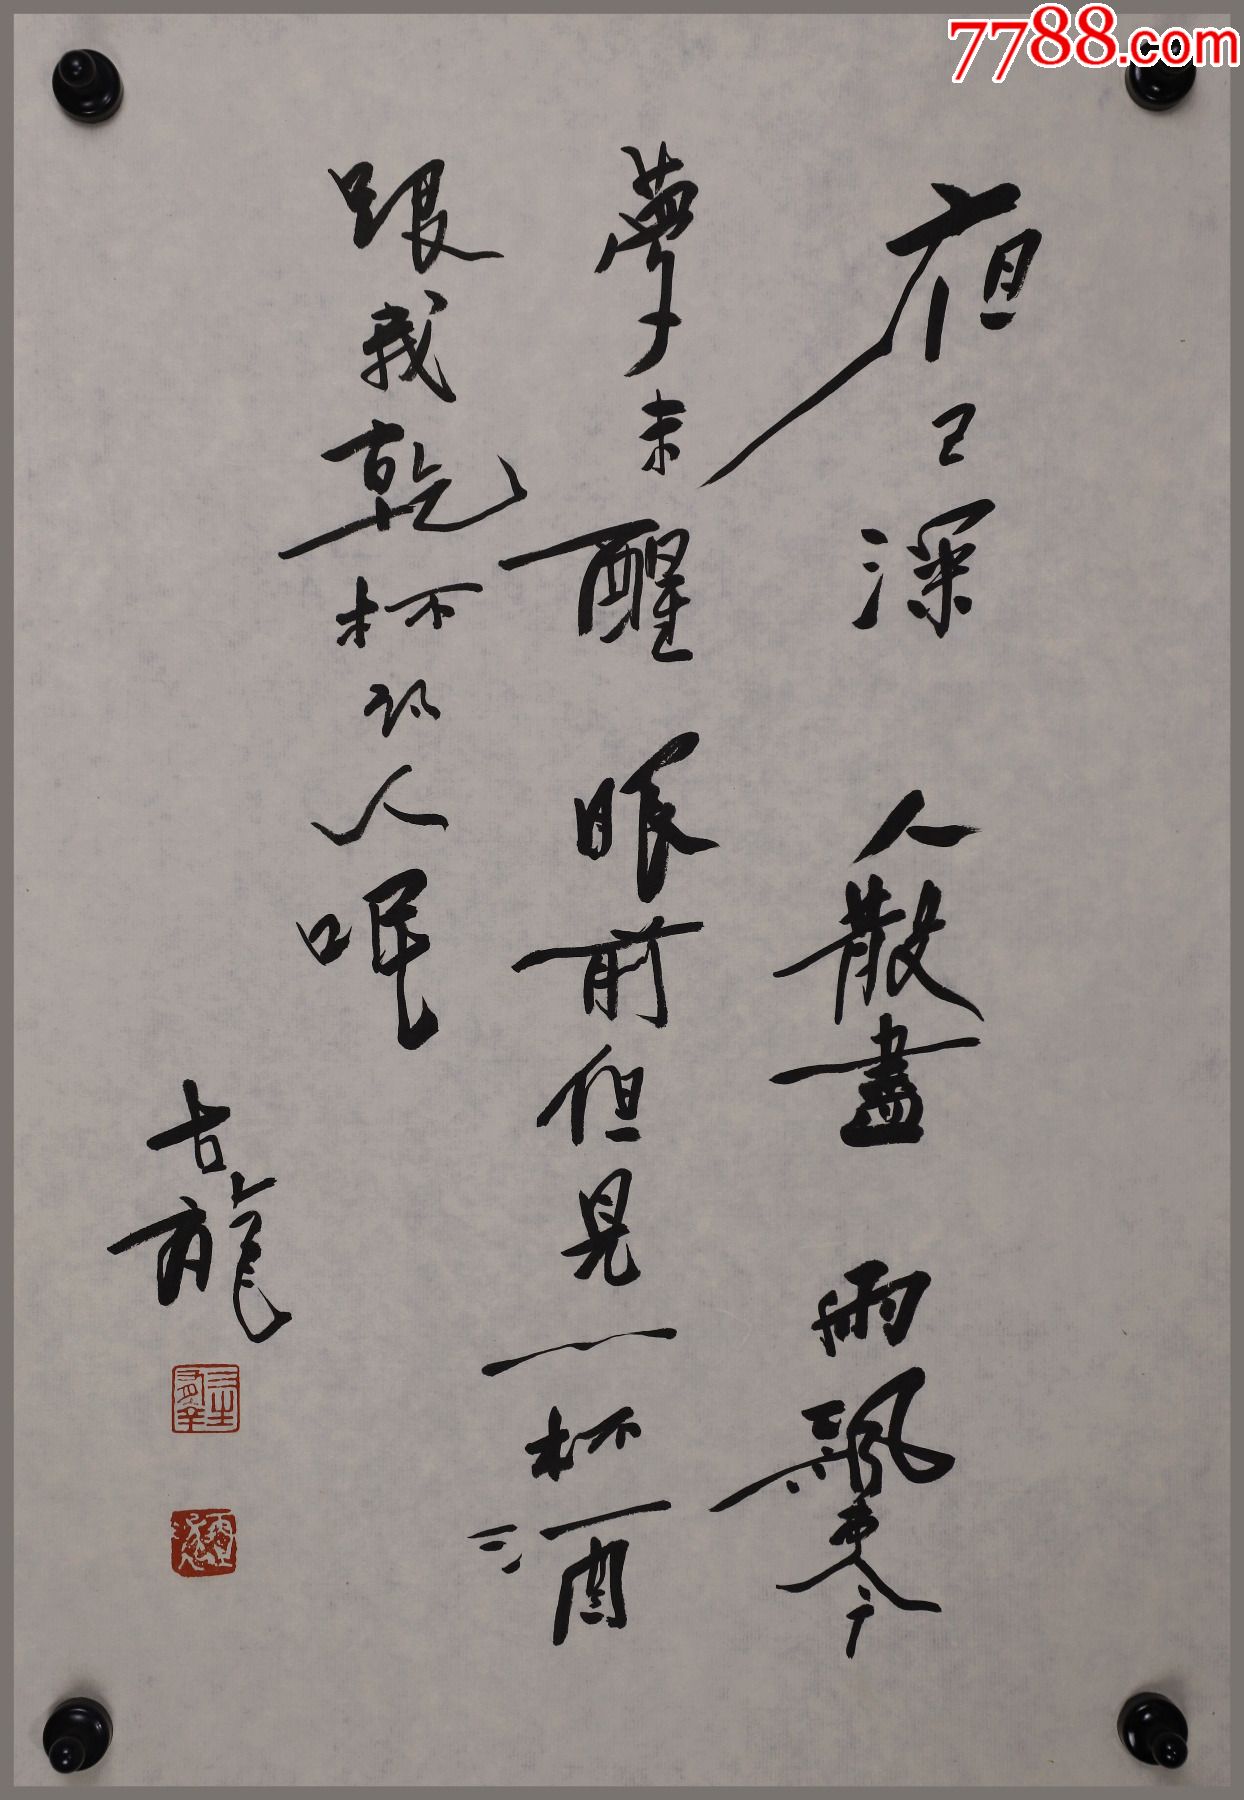 夜已深 人散盡 雨飄零
夢未醒 眼前但見一杯酒
跟我乾杯的人呢
古龍
7788.com